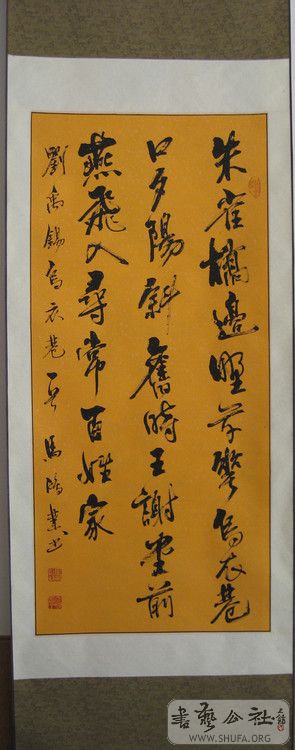 朱雀橋邊野草烏衣巷
口夕陽斜舊時王謝堂前
燕飛入尋常百姓家
劉禹錫烏衣巷一首 馬業书
書藝公社
WWW.SHUFA.ORG